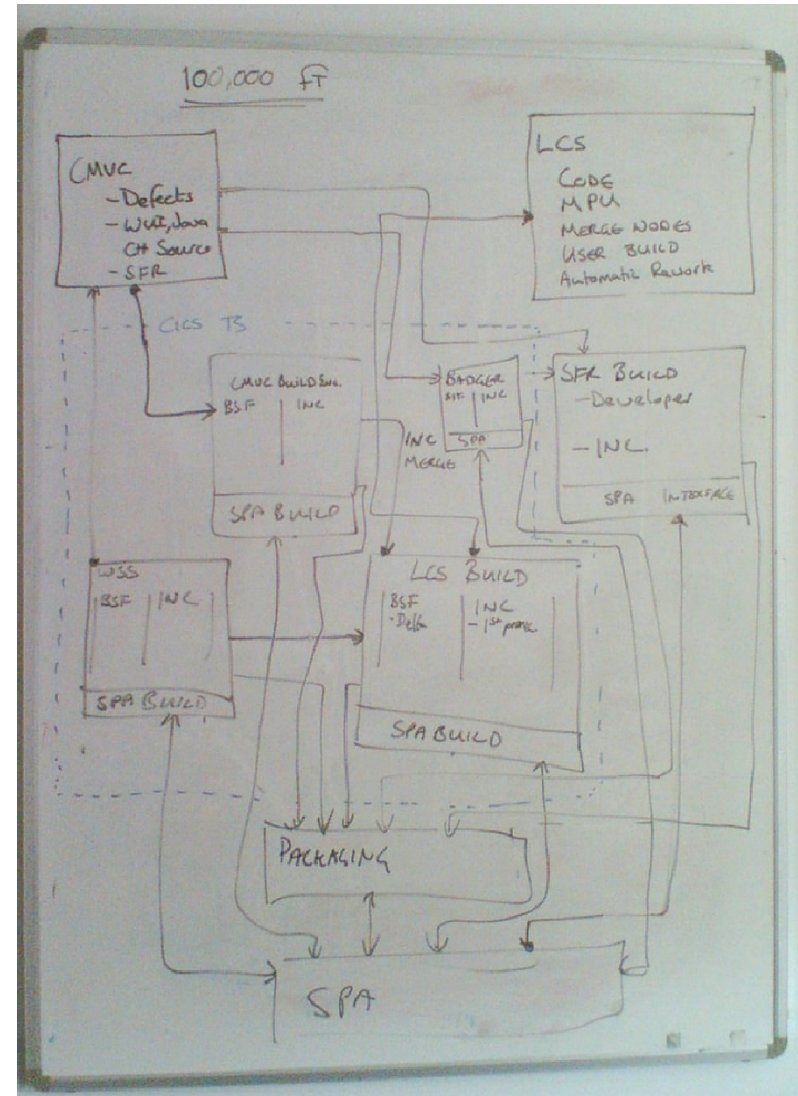 100,000 FT
CMVC
- Defects
- WUI, Java
C++ Source
- SFR
LCS
CODE
MPU
MERGE NODES
USER BUILD
Automatic Rework
CICS TS
CMVC BUILD
BSF INC
SPA BUILD
BADGER
INC
SPA
INC
MERGE
SFR BUILD
- Developer
- INC.
SPA INTERFACE
WSS
BSF INC
SPA BUILD
LCS BUILD
BSF INC
- Delta - 1st
SPA BUILD
PACKAGING
SPA